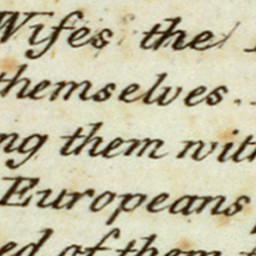 Wifes the
themselves.
ng them with
Europeans
ed of them